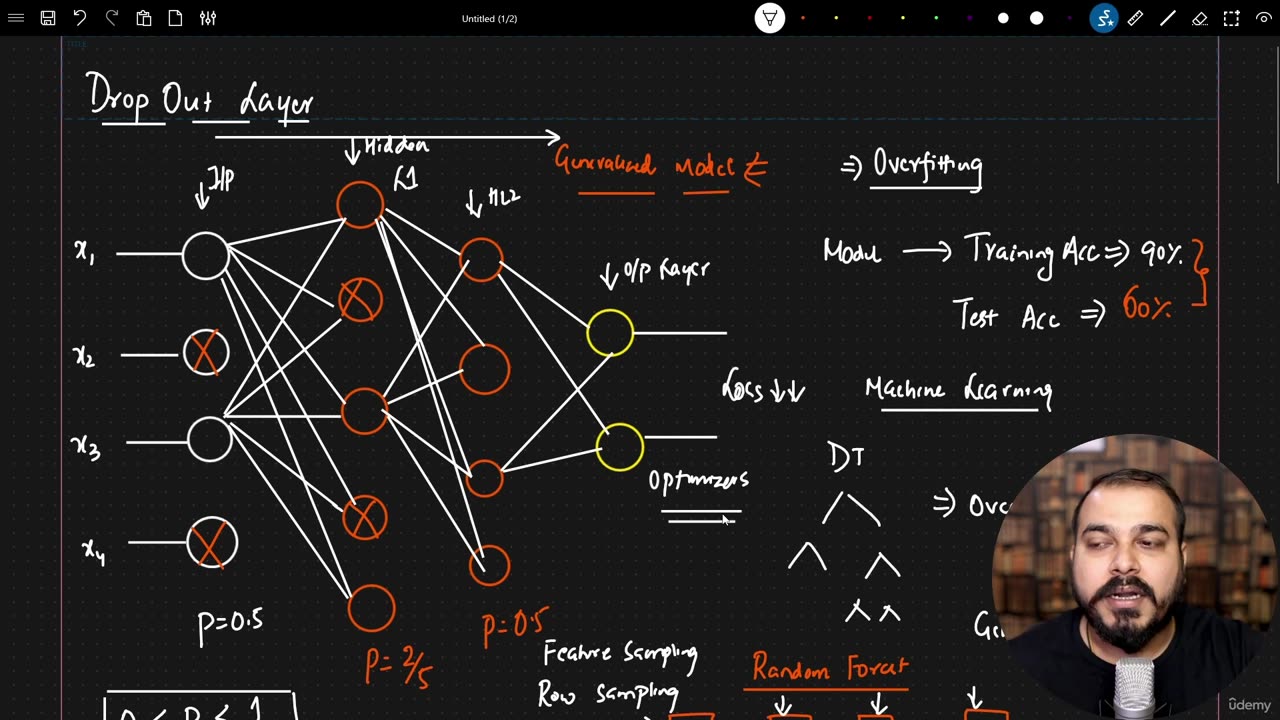 Untitled (1/2)
Drop Out Layer
I/P
Hidden
L1
HL2
O/P Layer
Generalized Model
⇒ Overfitting
x1
x2
x3
x4
Model → Training Acc ⇒ 90%
Test Acc ⇒ 60%
Loss ↓↓
Machine Learning
Optimizers
DT
P=0.5
P=2/5
P=0.5
Feature Sampling
Row Sampling
Random Forest
0 ≤ P ≤ 1
ûdemy